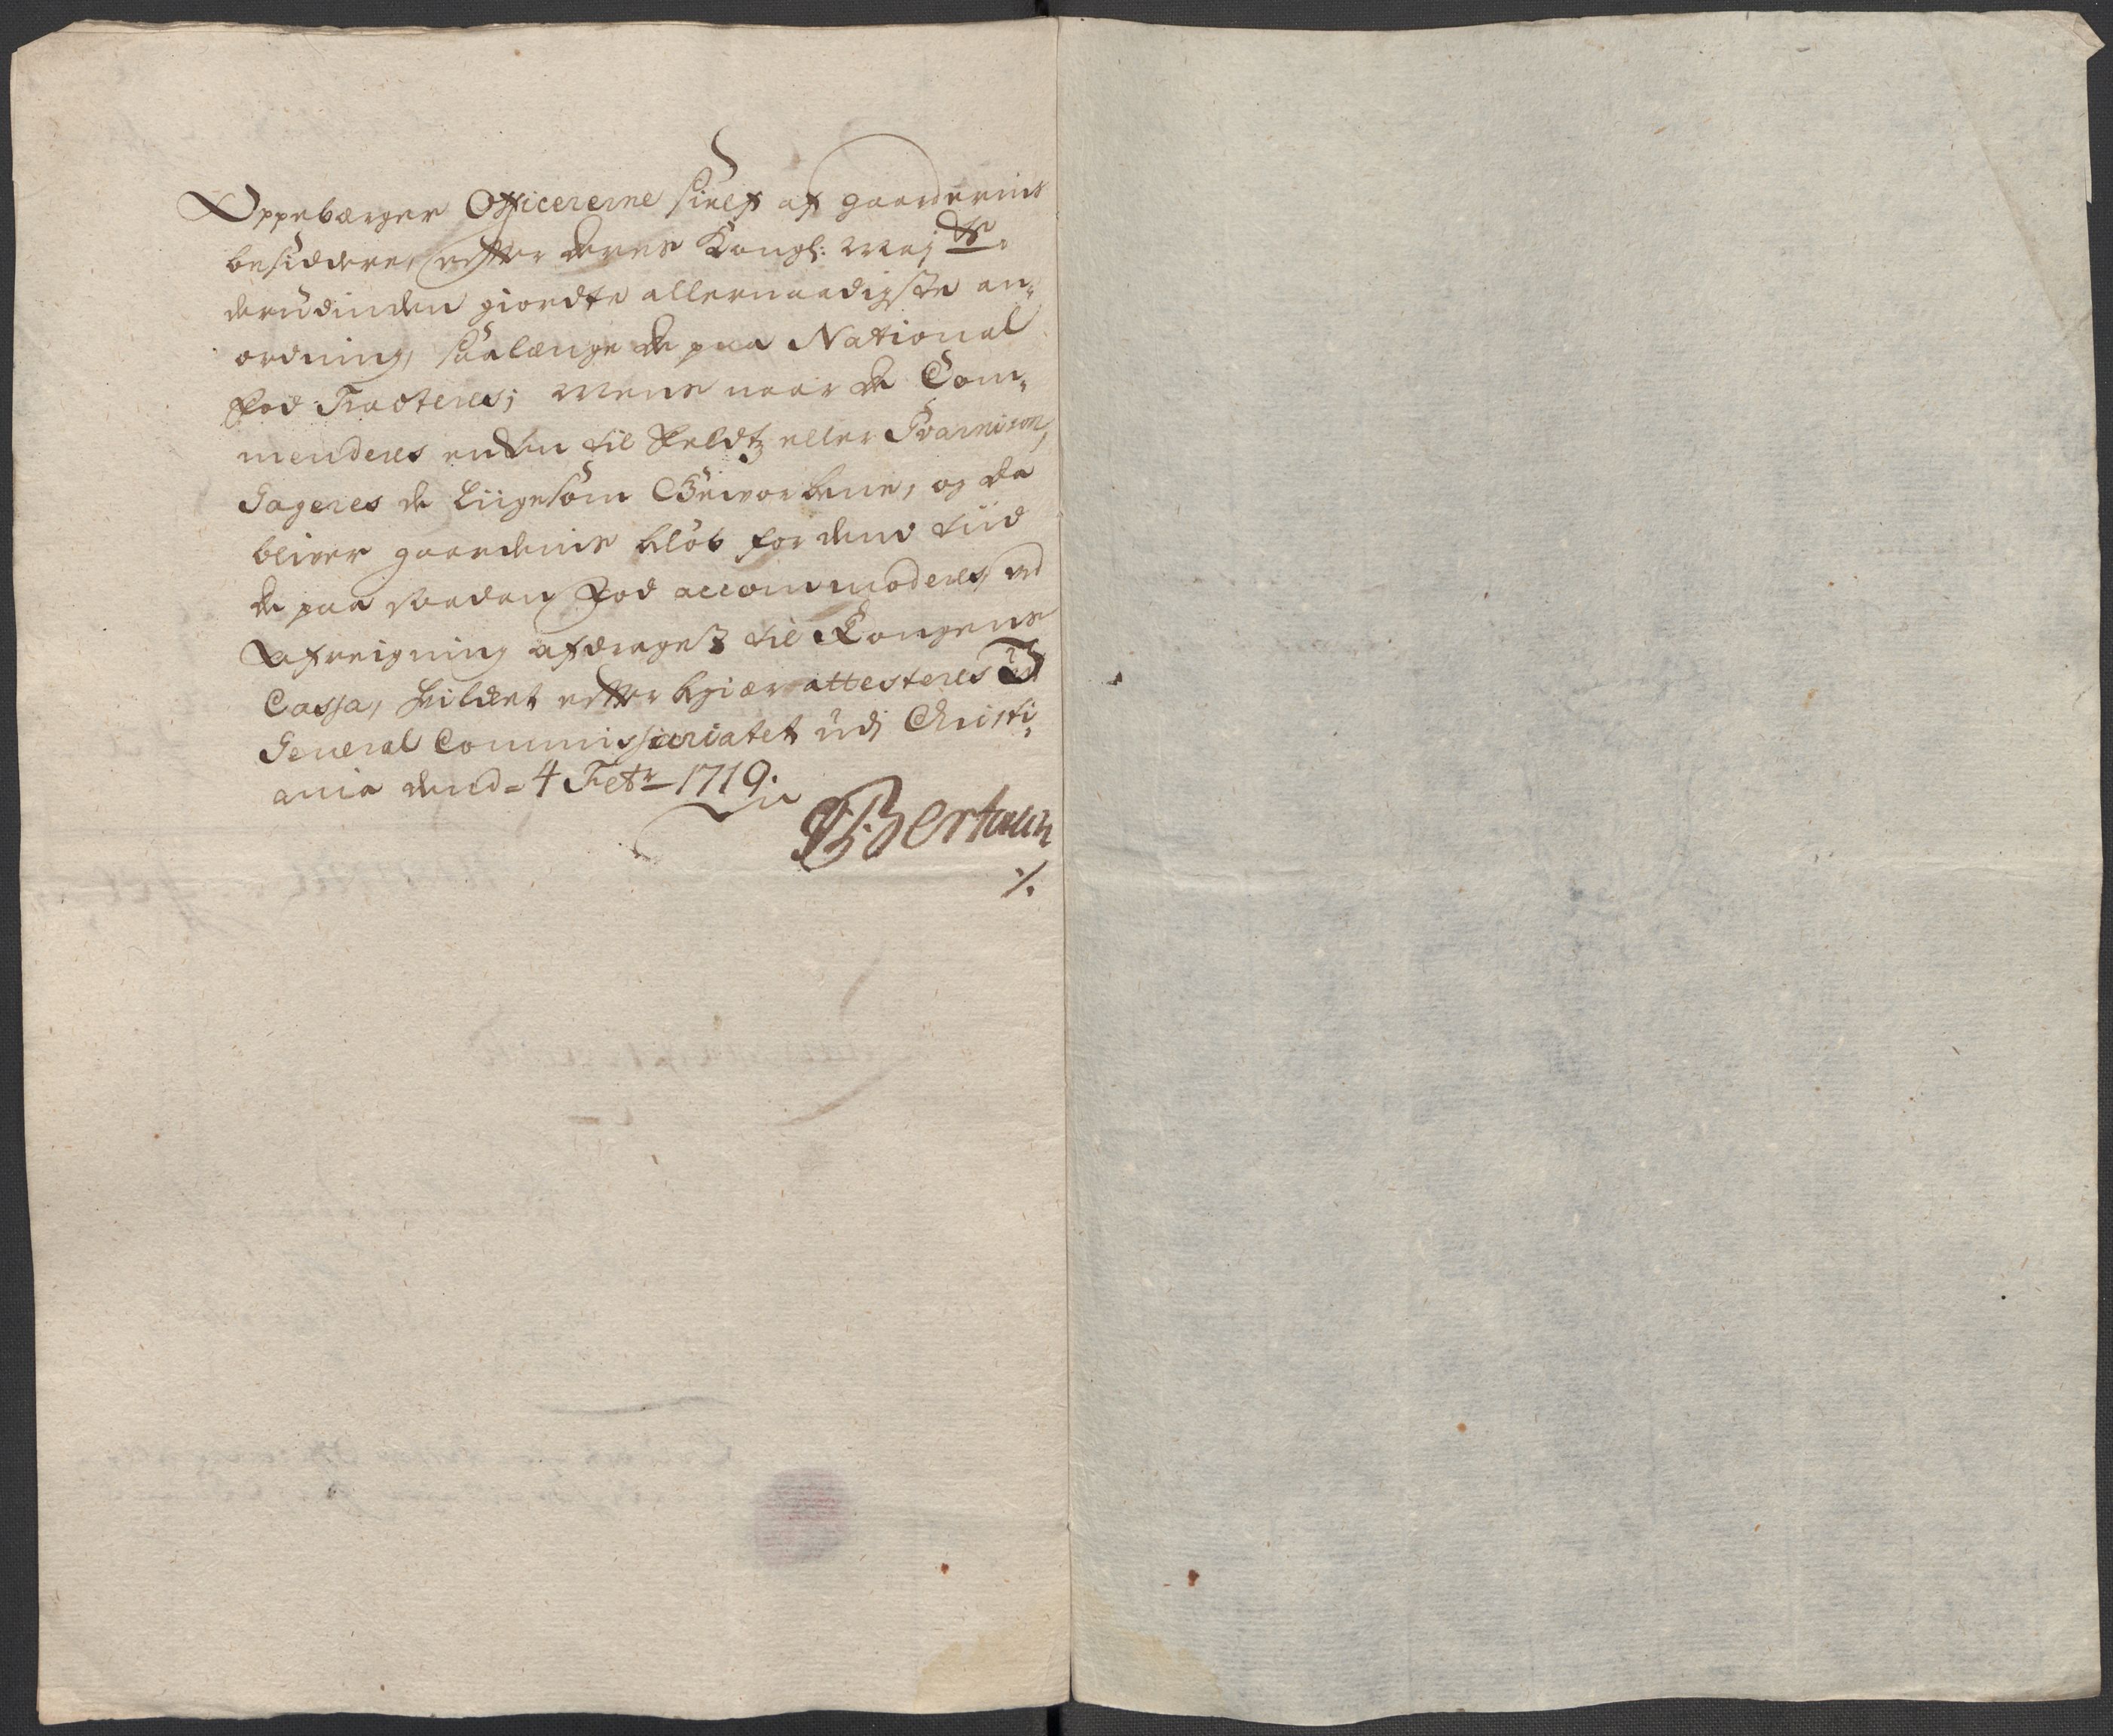 Oppebærger Officererne Sielf af gaardernis
besiddere, efter deres Kongl: May:ts
derudinden giordte allernaadigste an-
ordning, saalænge de paa National
Fod Tracteres; Mens naar de Com-
menderes enten til Feldtz eller Gvarnison,
Gageres de liigesom Gevorbene, og da
bliver gaardenis beløb for dend tiid
de paa saadan Fod accommoderes, ved
Afreigning afdraget til Kongens
Cassa, hvilket efter begiær attesteres
General Commissariatet udj Christi-
ania dend 4 Febr 1719.
Bertouch